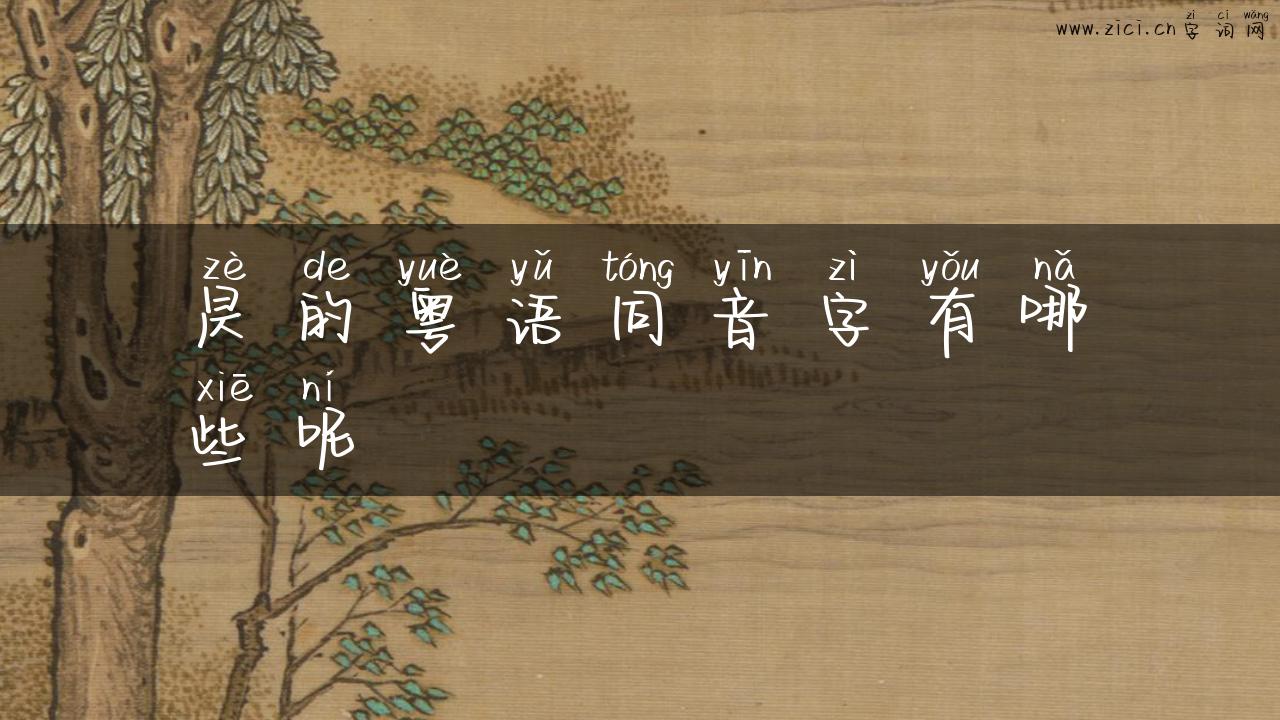 zì cí wǎng
www.zici.cn字词网
zè de yuè yǔ tóng yīn zì yǒu nǎ
昃的粤语同音字有哪
xiē ní
些呢